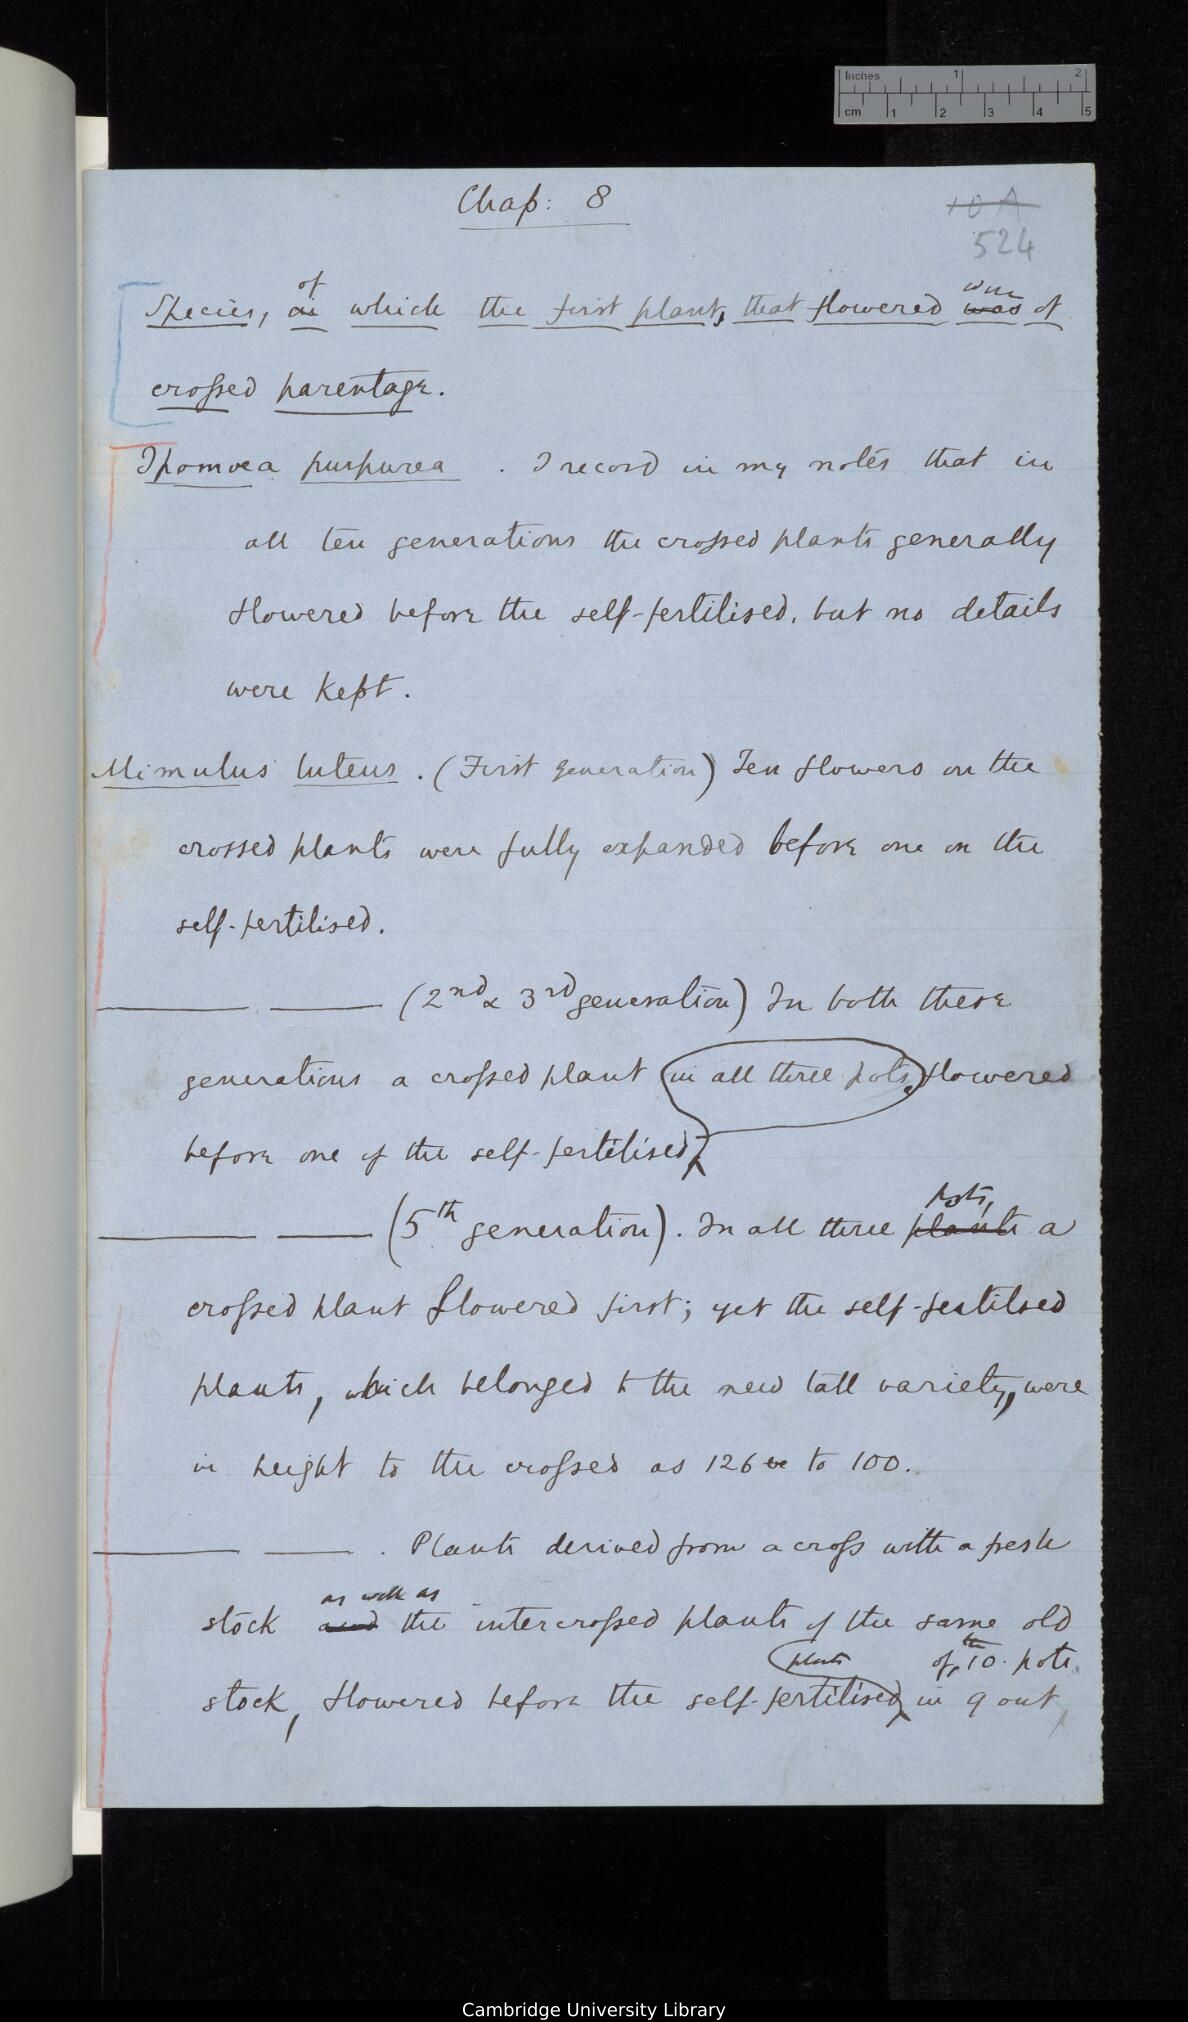 Inches 1 2
cm 1 2 3 4 5
Chap: 8
10 A
524
of
Species, in which the first plants, that flowered was were of
crossed parentage.
Ipomoea purpurea . I record in my notes that in
all ten generations the crossed plants generally
flowered before the self-fertilised, but no details
were kept.
Mimulus luteus . (First generation) Ten flowers on the
crossed plants were fully expanded before one on the
self-fertilised.
——— ——— (2nd & 3rd generation) In both these
generations a crossed plant in all three pots, flowered
before one of the self-fertilised
pots,
——— ——— (5th generation). In all three plants a
crossed plant flowered first; yet the self-fertilsed
plants, which belonged to the new tall variety, were
in height to the crossed as 126 to 100.
——— ——— . Plants derived from a cross with a fresh
as well as
stock and the intercrossed plants of the same old
plants of the 10 pots
stock, flowered before the self-fertilised in 9 out
Cambridge University Library